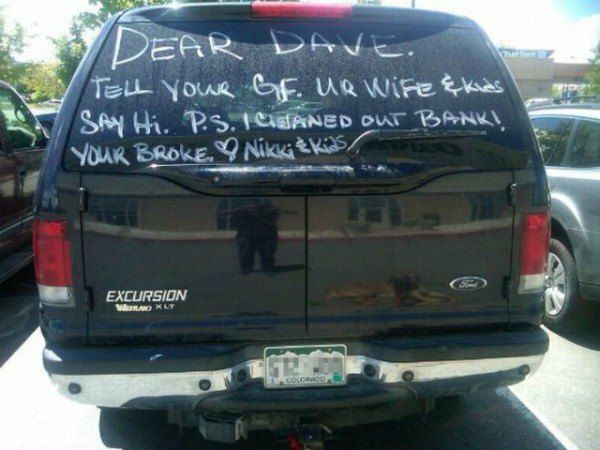 DEAR DAVE.
TELL YOUR GF. UR WIFE & Kids
SAY Hi. P.S. I CLEANED OUT BANK!
YOUR BROKE. ♡ Nikki & Kids
EXCURSION
XLT
Ford
COLORADO